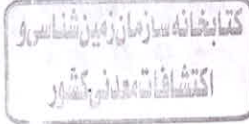 کتابخانه سازمان زمین‌شناسی و
اکتشافات معدنی کشور